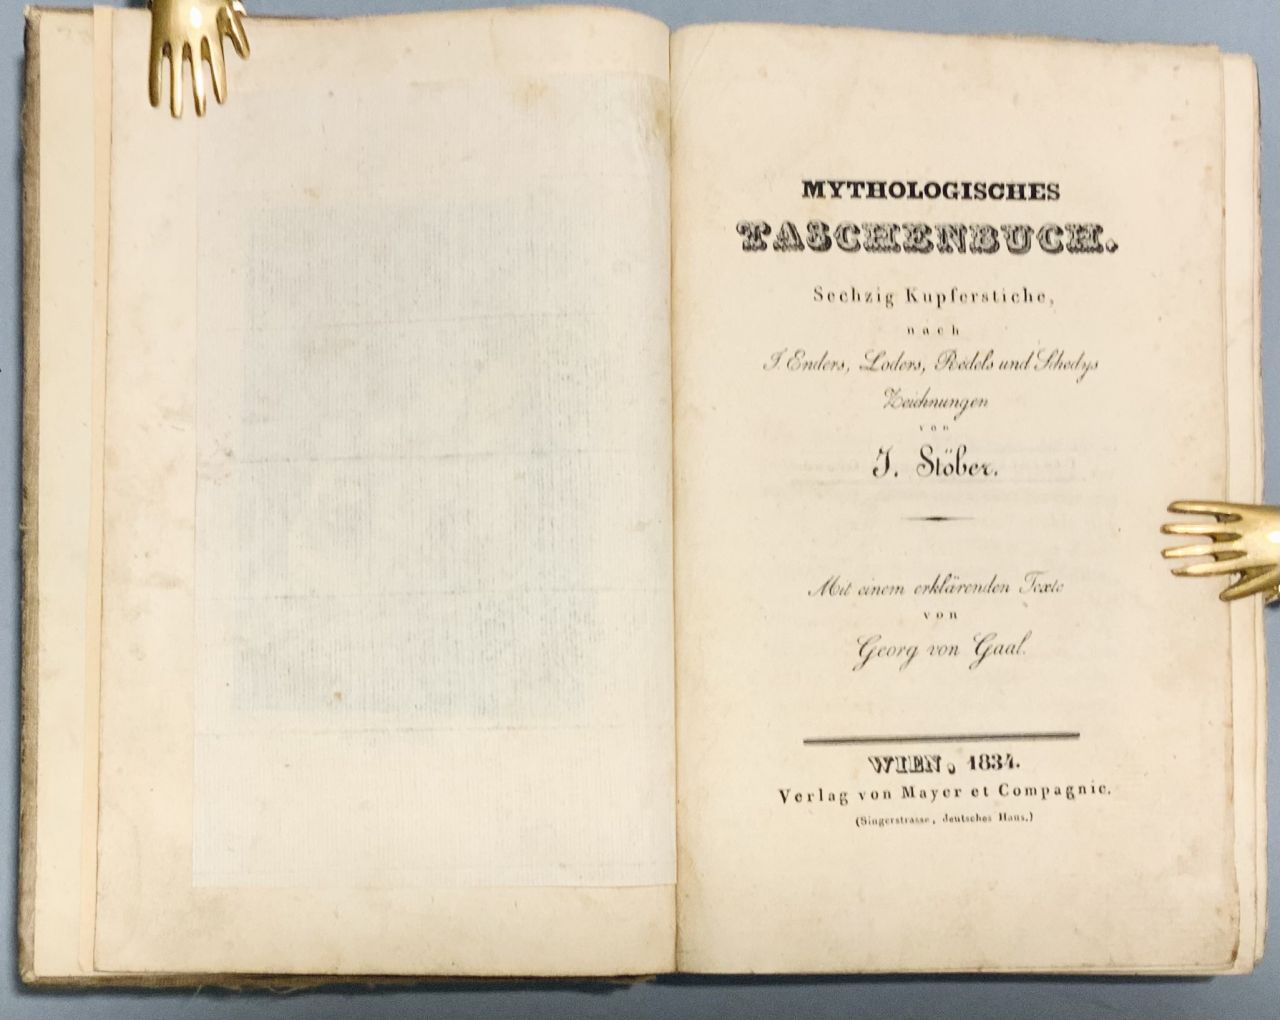 MYTHOLOGISCHES
TASCHENBUCH.
Sechzig Kupferstiche,
nach
J. Enders, Loders, Redels und Schedys
Zeichnungen
von
J. Stöber.
Mit einem erklärenden Texte
von
Georg von Gaal.
WIEN, 1834.
Verlag von Mayer et Compagnie.
(Singerstrasse, deutsches Haus.)